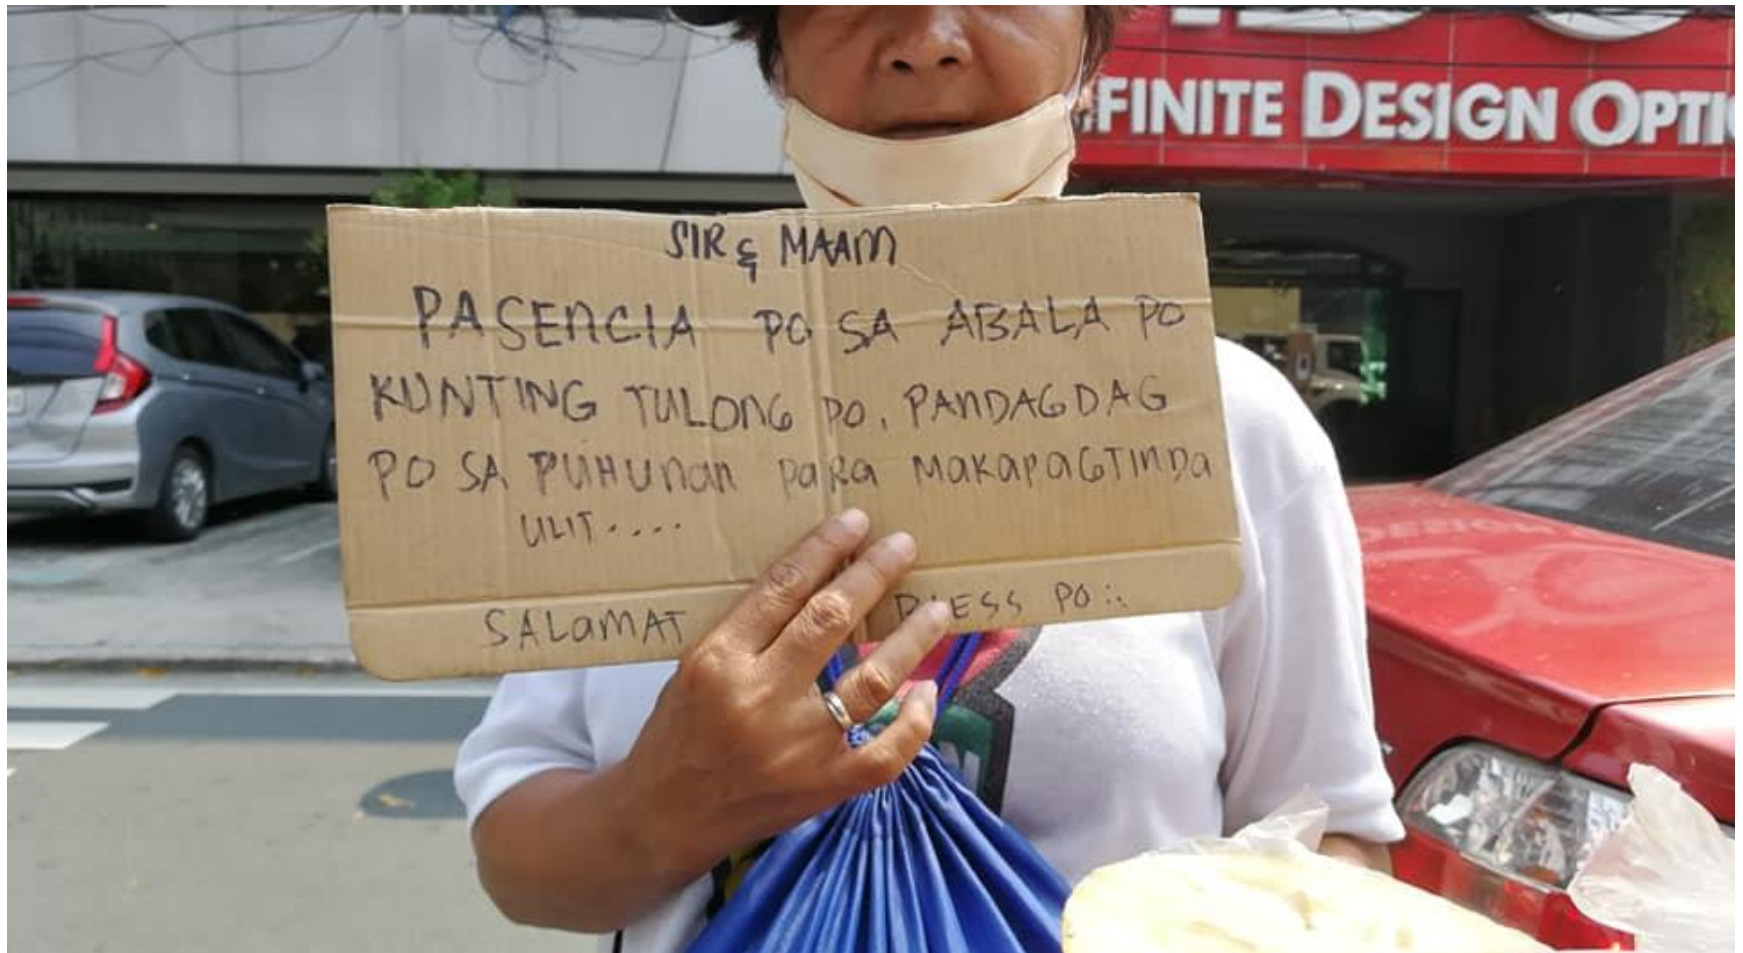 FINITE DESIGN OPTI
SIR & MAAM
PASENCIA PO SA ABALA PO
KUNTING TULONG PO. PANDAGDAG
PO SA PUHUNAN PARA MAKAPAGTINDA
ULIT....
SALAMAT BLESS PO:.